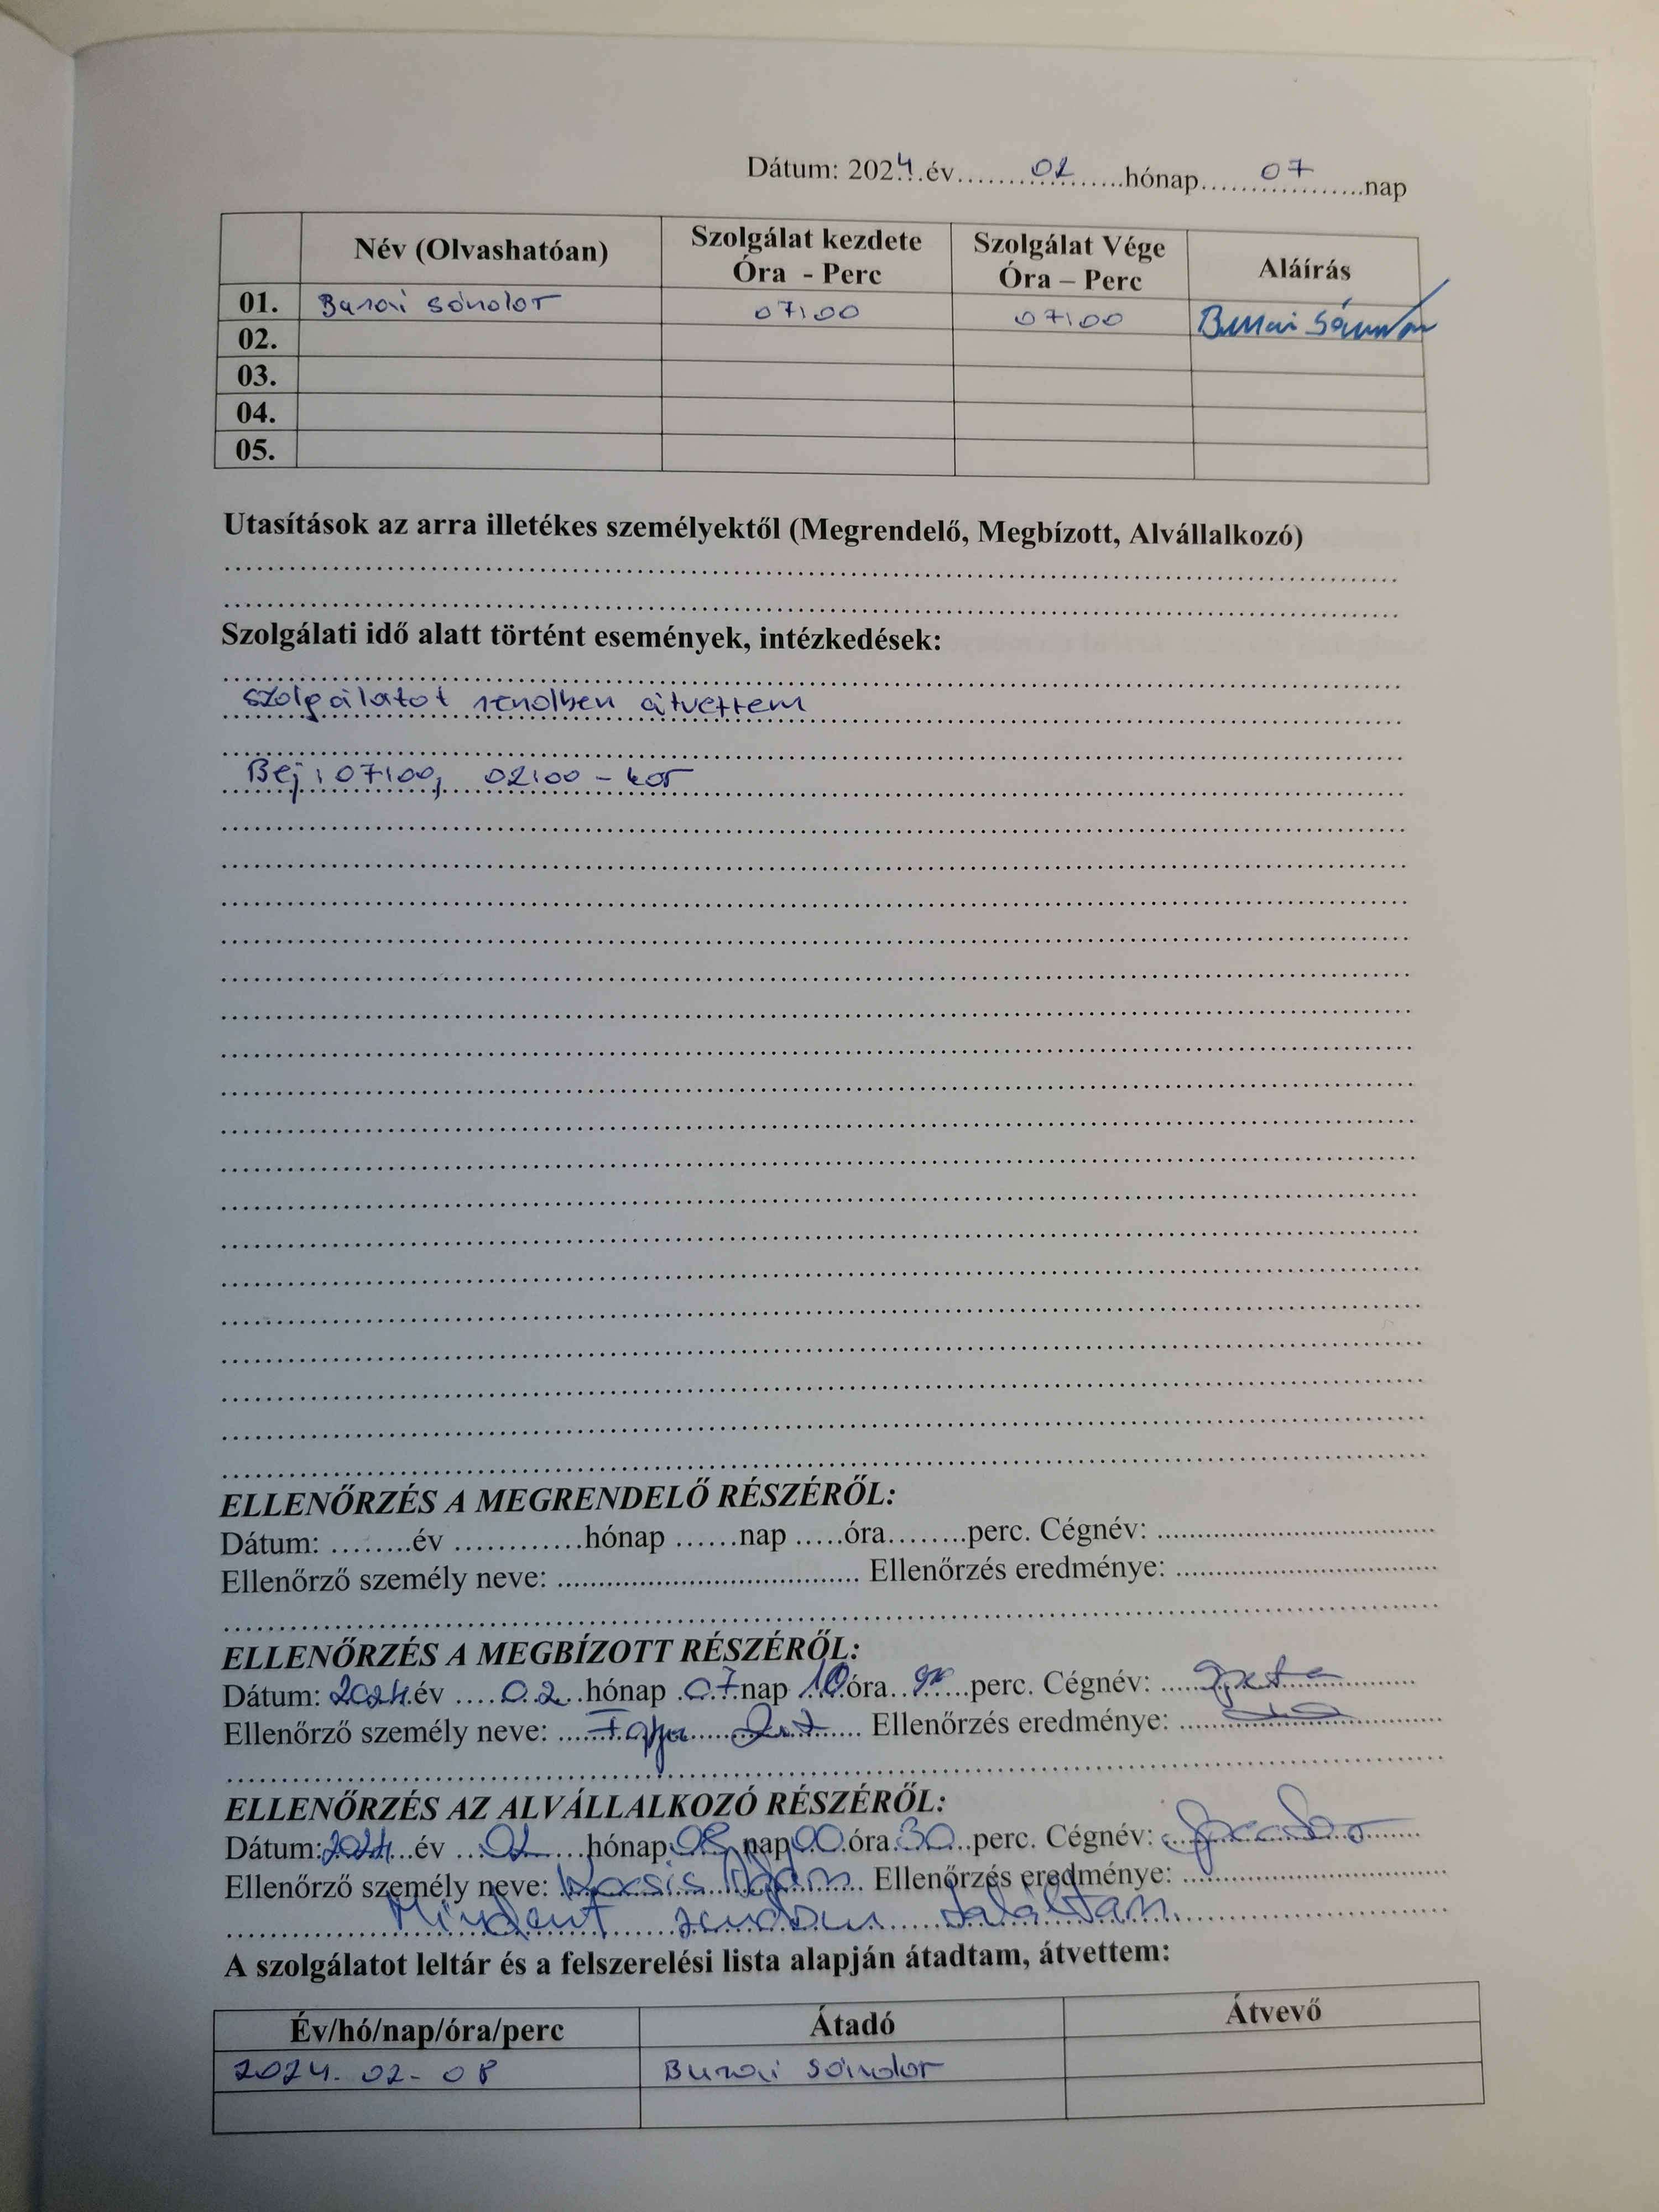 Dátum: 2024.év..........02..........hónap..........07..........nap
Név (Olvashatóan) Szolgálat kezdete Óra - Perc Szolgálat Vége Óra – Perc Aláírás
01. Burai Sándor 07:00 07:00 Burai Sándor
02.
03.
04.
05.
Utasítások az arra illetékes személyektől (Megrendelő, Megbízott, Alvállalkozó)
Szolgálati idő alatt történt események, intézkedések:
szolgálatot rendben átvettem
Bej: 07:00, 02:00 - kor
ELLENŐRZÉS A MEGRENDELŐ RÉSZÉRŐL:
Dátum: ........év ............hónap ......nap .....óra........perc. Cégnév: ..............................
Ellenőrző személy neve: .................................. Ellenőrzés eredménye: ..............................
ELLENŐRZÉS A MEGBÍZOTT RÉSZÉRŐL:
Dátum: 2024.év ....02..hónap .07.nap 10óra........perc. Cégnév:
Ellenőrző személy neve: Ellenőrzés eredménye:
ELLENŐRZÉS AZ ALVÁLLALKOZÓ RÉSZÉRŐL:
Dátum: 2024...év ...02....hónap 08 nap 00 óra 30..perc. Cégnév:
Ellenőrző személy neve: Kocsis Ádám Ellenőrzés eredménye:
Mindent rendben találtam.
A szolgálatot leltár és a felszerelési lista alapján átadtam, átvettem:
Év/hó/nap/óra/perc Átadó Átvevő
2024. 02 - 08 Burai Sándor